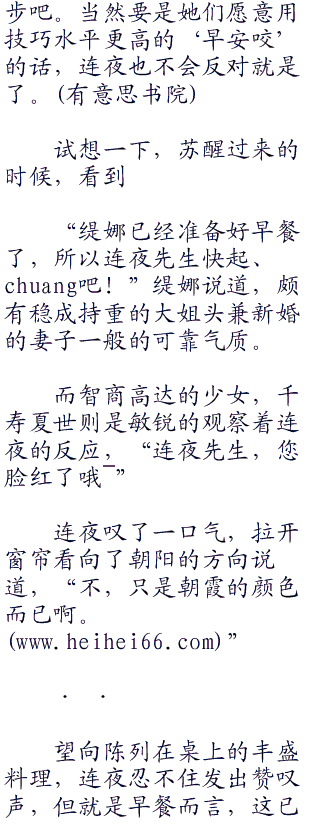 步吧。当然要是她们愿意用
技巧水平更高的‘早安咬’
的话，连夜也不会反对就是
了。(有意思书院)
试想一下，苏醒过来的
时候，看到
“缇娜已经准备好早餐
了，所以连夜先生快起、
chuang吧！”缇娜说道，颇
有稳成持重的大姐头兼新婚
的妻子一般的可靠气质。
而智商高达的少女，千
寿夏世则是敏锐的观察着连
夜的反应，“连夜先生，您
脸红了哦¯”
连夜叹了一口气，拉开
窗帘看向了朝阳的方向说
道，“不，只是朝霞的颜色
而已啊。
(www.heihei66.com)”
． ．
望向陈列在桌上的丰盛
料理，连夜忍不住发出赞叹
声，但就是早餐而言，这已